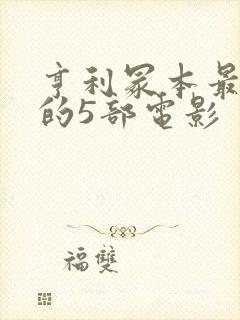 亨利冢本最
的5部電影
福雙